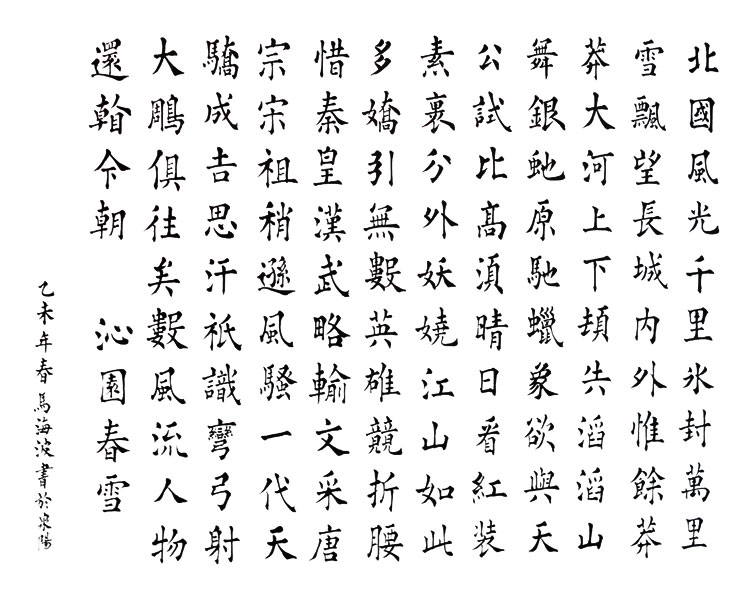 北國風光千里氷封萬里
雪飄望長城内外惟餘莽
莽大河上下頓失滔滔山
舞銀虵原馳蠟象欲與天
公試比髙湏晴日看紅装
素裹分外妖嬈江山如此
多嬌引無數英雄競折腰
惜秦皇漢武略輸文采唐
宗宋祖稍遜風騷一代天
驕成吉思汗祇識彎弓射
大鵰俱往矣數風流人物
還今朝 沁園春雪
乙未年春馬海波書於陽